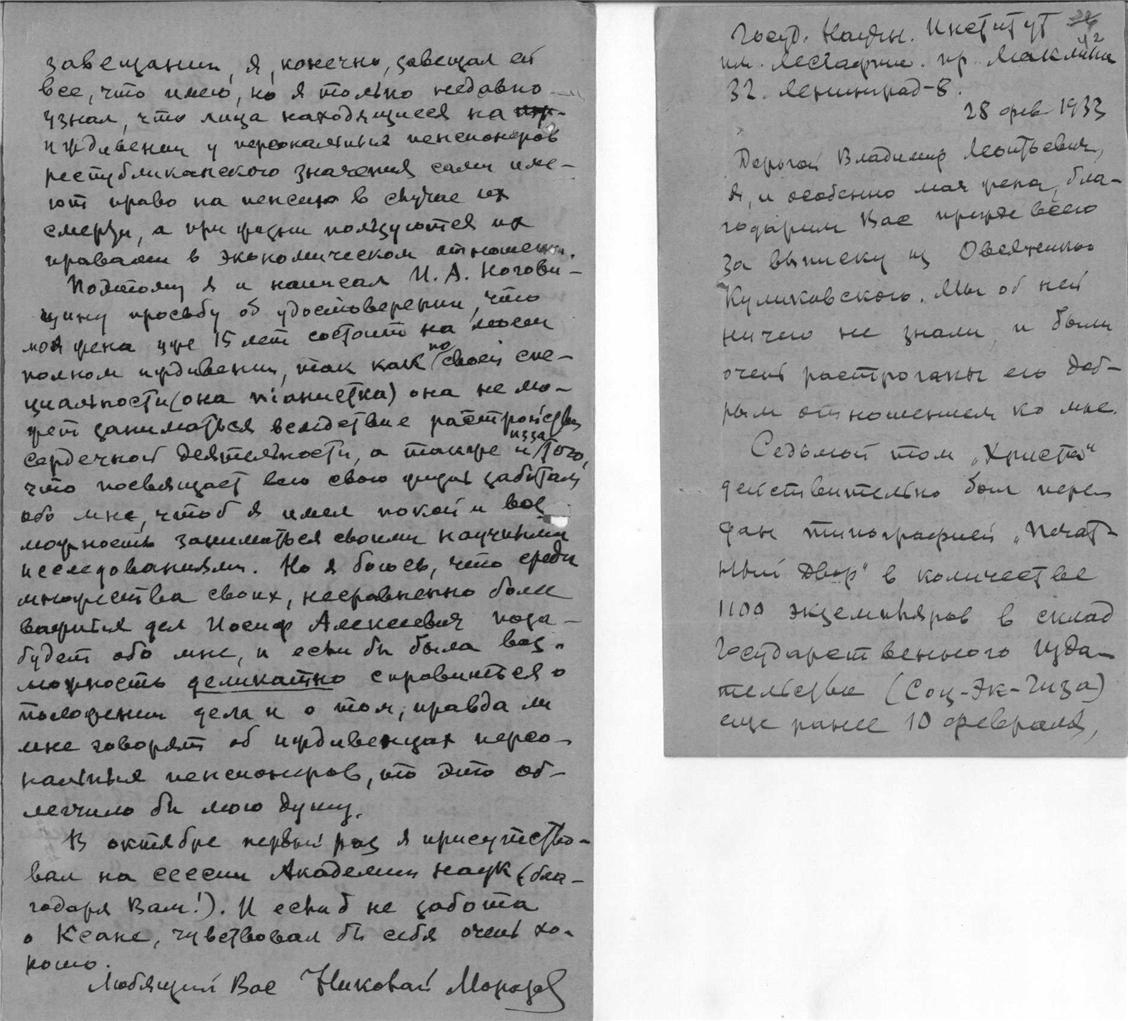 завещании, я, конечно, завещал ей
все, что имею, но я только недавно
узнал, что лица находящиеся на
иждивении у персональных пенсионеров
республиканского значения сами име-
ют право на пенсию в случае их
смерти, а при жизни пользуются их
правами в экономическом отношении.
Поэтому я и написал И. А. Когови-
цину просьбу об удостоверении, что
моя жена уже 15 лет состоит на моем
полном иждивении, так как по своей спе-
циальности (она піанистка) она не мо-
жет заниматься вследствие расстройства
сердечной деятельности, а также и из за того,
что посвящает всю свою жизнь заботам
обо мне, чтоб я имел покой и воз
можность заниматься своими научными
исследованиями. Но я боюсь, что среди
множества своих, несравненно более
важных дел Иосиф Алексеевич поза-
будет обо мне, и если бы была воз-
можность деликатно справиться о
положении дела и о том, правда ли
мне говорят об иждивенцах персо-
нальных пенсионеров, то это об-
легчило бы мою душу.
В октябре первый раз я присутство-
вал на сессии Академии Наук (бла-
годаря Вам!). И если б не забота
о Ксане, чувствовал бы себя очень хо-
рошо.
Любящий Вас Николай Морозов
Госуд. Научн. Институт
им. Лесгафта. пр. Маклина
32. Ленинград-8.
28 фев 1933
Дорогой Владимир Леонтьевич,
я, и особенно моя жена, бла-
годарим Вас прежде всего
за выписку из Овсянико
Куликовского. Мы об ней
ничего не знали, и были
очень растроганы его доб-
рым отношением ко мне.
Седьмой том „Христа"
действительно был пере-
дан типографией „Печат-
ный Двор" в количестве
1100 экземпляров в склад
Государственного Изда-
тельства (Соц-Эк-Гиза)
еще ранее 10 февраля,